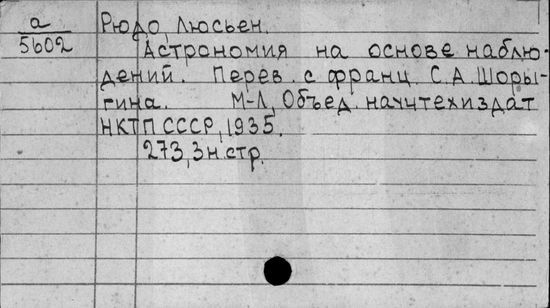 а
5602
Рюдо, Люсьен.
Астрономия на основе наблю-
дений. Перев. с франц. С.А. Шоры-
гина. М-Л, Объед. научтехиздат
НКТП СССР, 1935.
273, 3 н. стр.